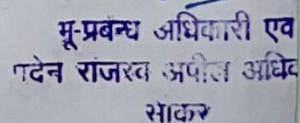 भू-प्रबन्ध अधिकारी एव
पदेन राजस्व अपील अधिक
सीकर